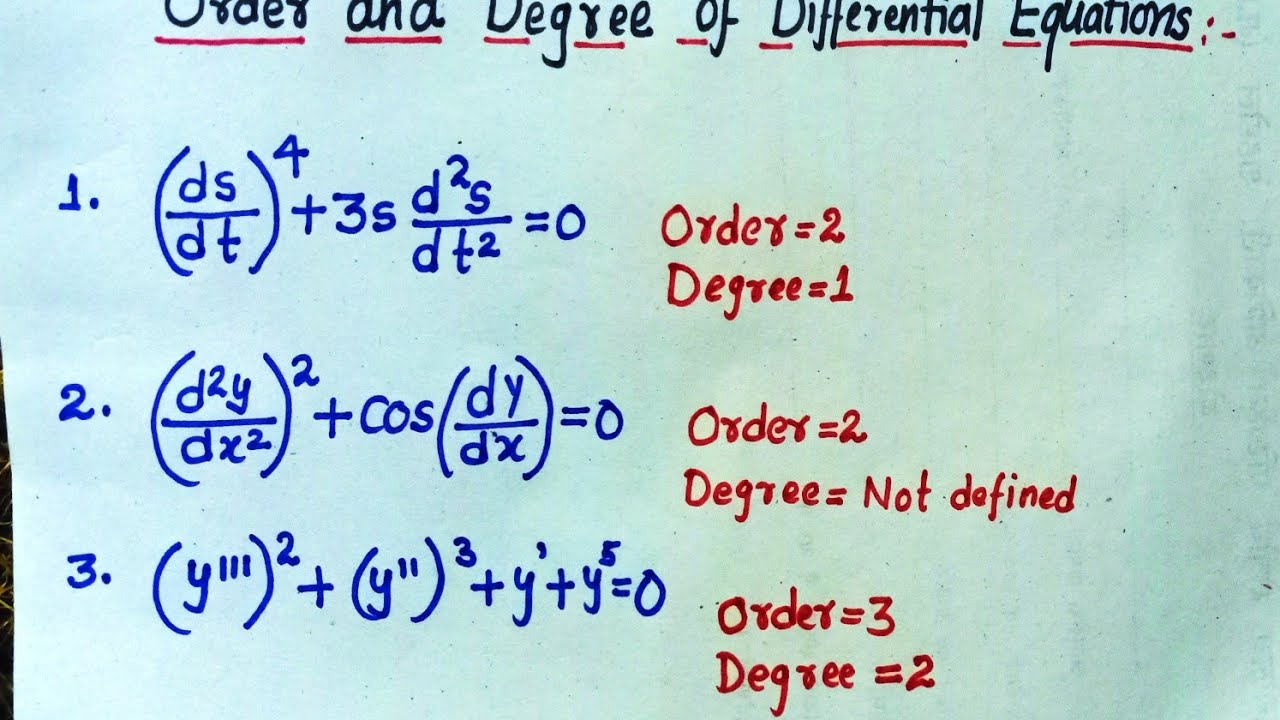 Order and Degree of Differential Equations:-
1. (ds/dt)⁴+3s d²s/dt²=0
Order=2
Degree=1
2. (d²y/dx²)²+cos(dy/dx)=0
Order=2
Degree= Not defined
3. (y''')²+(y'')³+y'+y⁵=0
Order=3
Degree=2